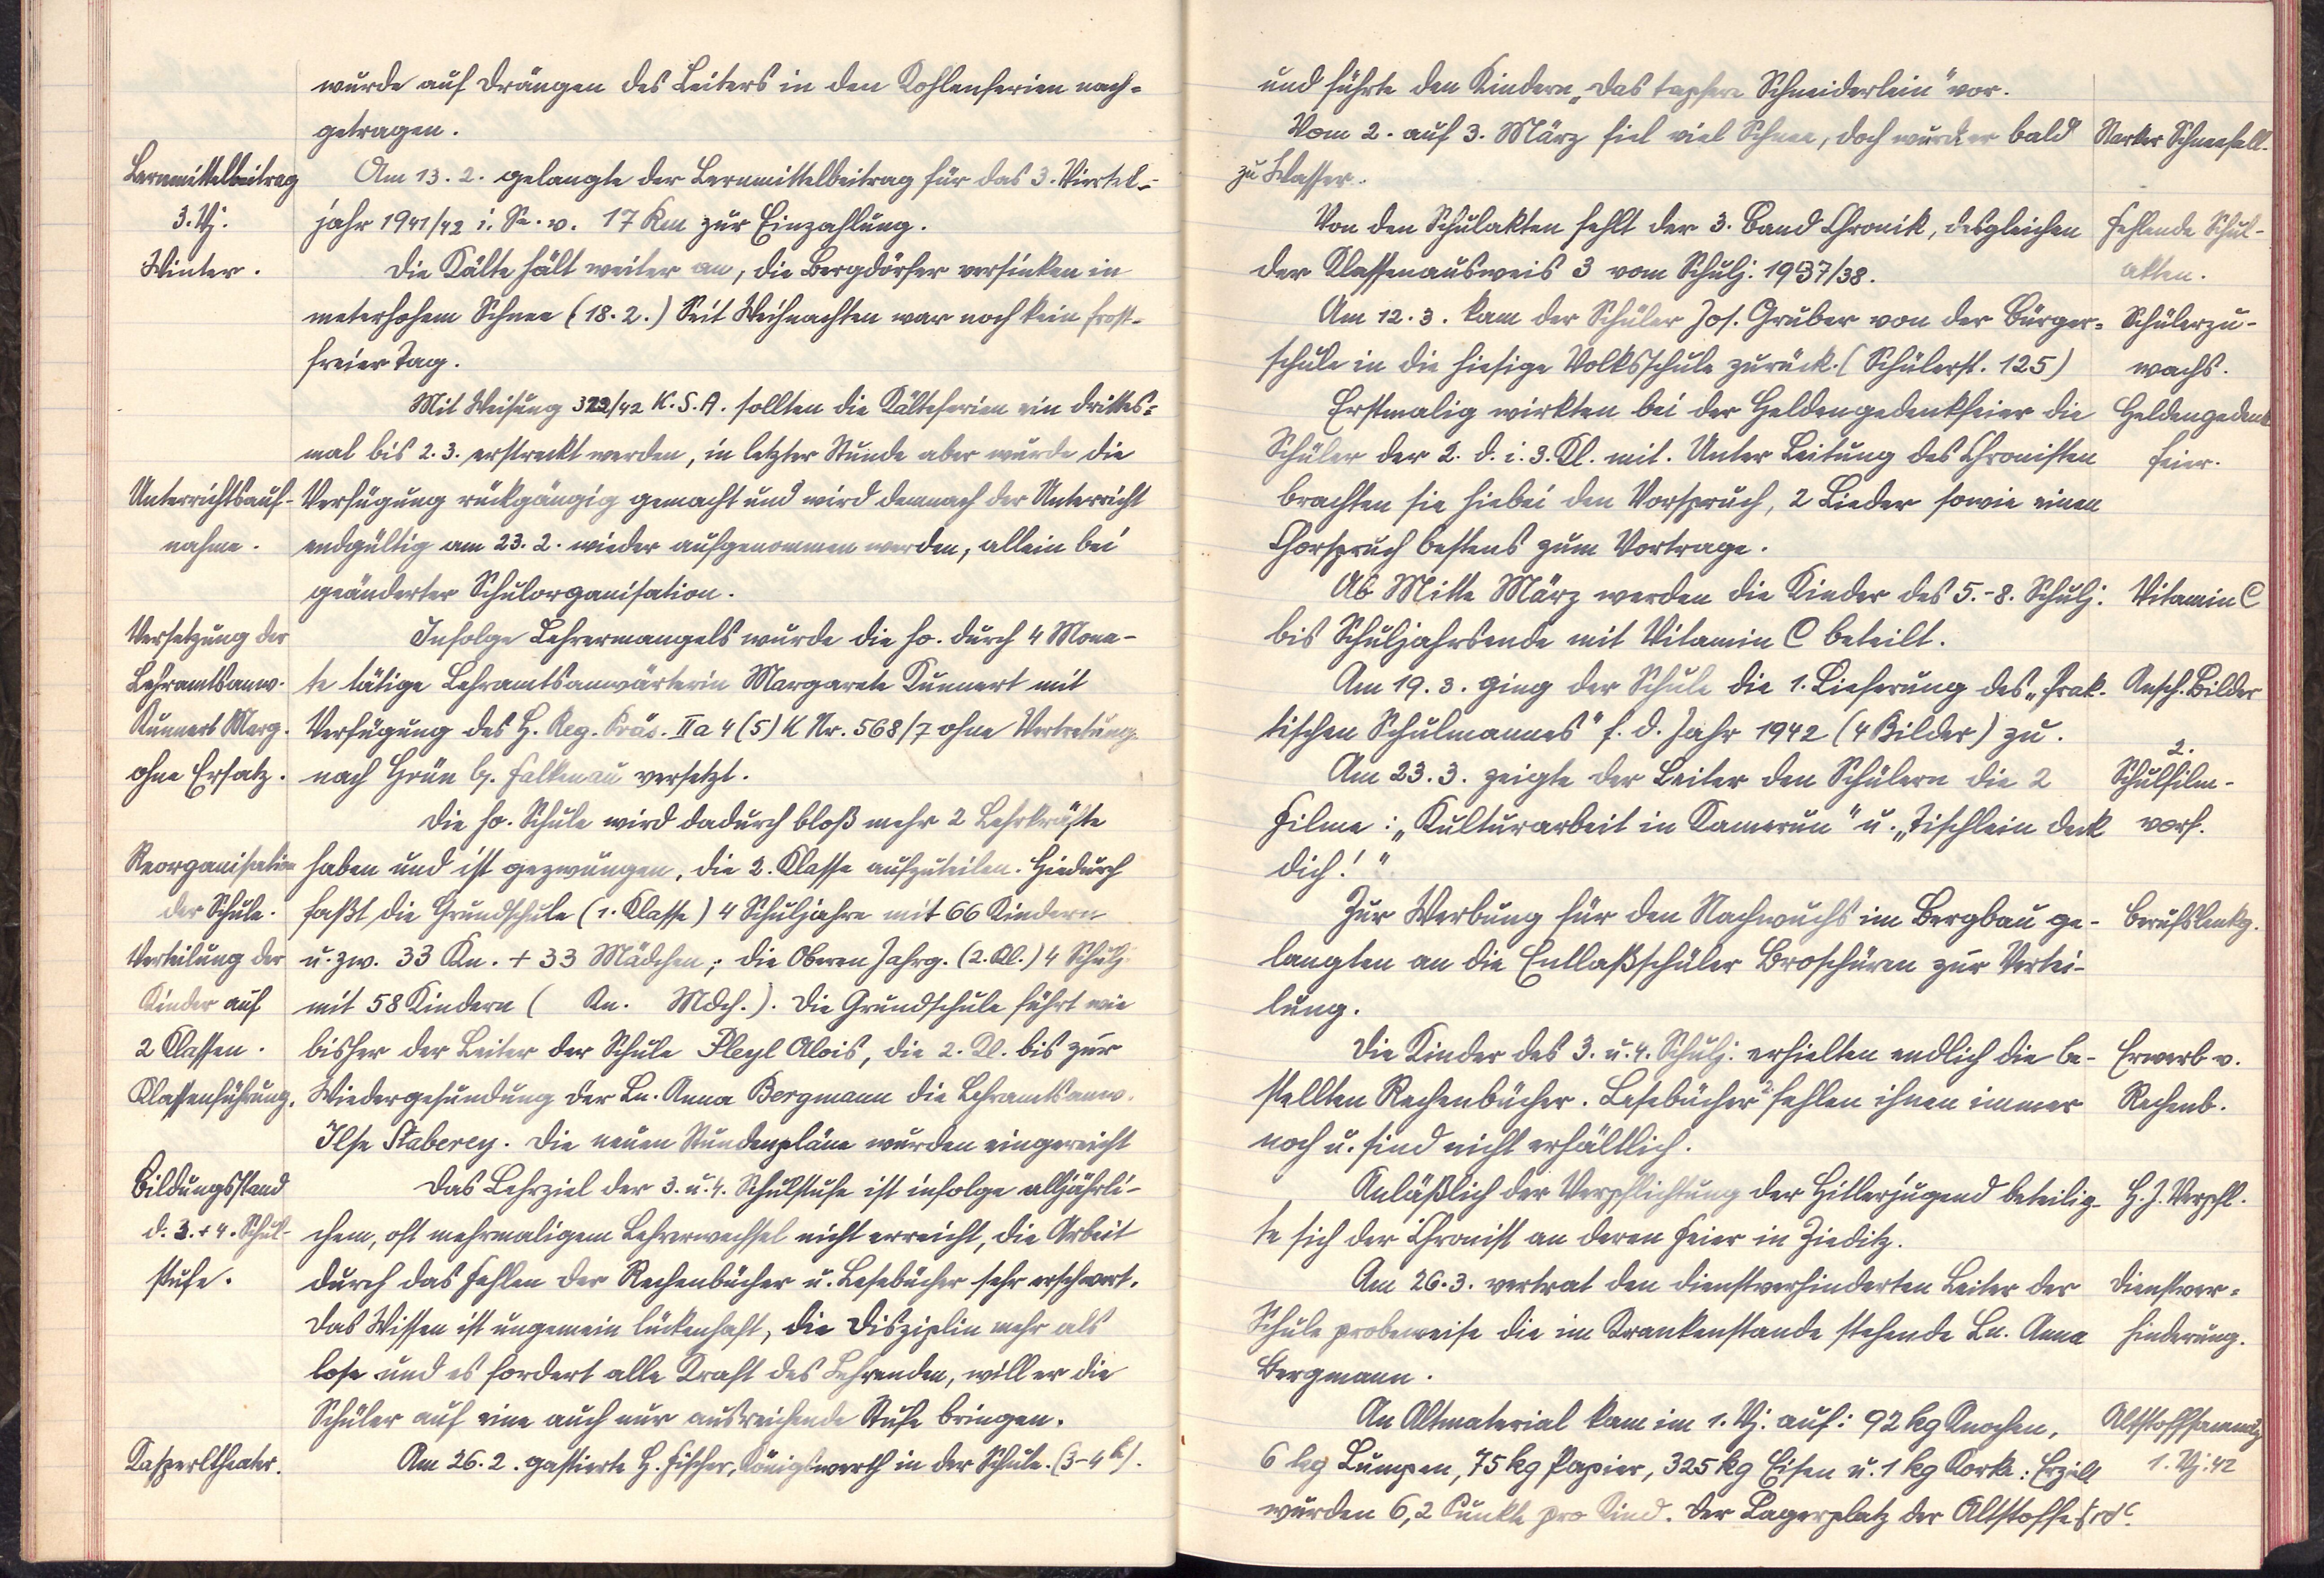 wurde auf Drängen des Leiters in den Kohlenferien nach=
getragen.
Lernmittelbeitrag
3. Vj.
Am 13. 2. gelangte der Lernmittelbeitrag für das 3. Viertel=
jahr 1941/42 i. Se. v. 17 Rm zur Einzahlung.
Winter.
Die Kälte hält weiter an, die Bergdörfer versinken in
meterhohem Schnee (18. 2.) Seit Weihnachten war noch kein frost=
freier Tag.
Mit Weisung 322/42 K.S.A. sollten die Kälteferien ein drittes=
mal bis 2. 3. erstreckt werden, in letzter Stunde aber wurde die
Unterrichtsauf-
nahme.
Verfügung rückgängig gemacht und wird demnach der Unterricht
endgültig am 23. 2. wieder aufgenommen werden, allein bei
geänderter Schulorganisation.
Versetzung der
Lehramtsanw.
Kunnert Marg.
ohne Ersatz.
Infolge Lehrermangels wurde die ho. durch 4 Mona-
te tätige Lehramtsanwärterin Margarete Kunnert mit
Verfügung des H. Reg. Präs. IIa 4 (5) K Nr. 568/7 ohne Vertretung
nach Grün b. Falkenau versetzt.
Die ho. Schule wird dadurch bloß mehr 2 Lehrkräfte
Reorganisation
der Schule.
Verteilung der
Kinder auf
2 Klassen.
Klassenführung.
haben und ist gezwungen, die 2. Klasse aufzuteilen. Hiedurch
faßt die Grundschule (1. Klasse) 4 Schuljahre mit 66 Kindern
u. zw. 33 Kn. + 33 Mädchen; die Oberen Jahrg. (2. Kl.) 4 Schulj.
mit 58 Kindern ( Kn. Mdch.). Die Grundschule führt wie
bisher der Leiter der Schule Pleyl Alois, die 2. Kl. bis zur
Wiedergesundung der Ln. Anna Bergmann die Lehramtsanw.
Ilse Staberey. Die neuen Stundenpläne wurden eingereicht
Bildungsstand
d. 3. + 4. Schul-
stufe.
Das Lehrziel der 3. u. 4. Schulstufe ist infolge alljährli-
chem, oft mehrmaligem Lehrerwechsel nicht erreicht, die Arbeit
durch das Fehlen der Rechenbücher u. Lesebücher sehr erschwert.
Das Wissen ist ungemein lückenhaft, die Disziplin mehr als
lose und es fordert alle Kraft des Lehrenden, will er die
Schüler auf eine auch nur ausreichende Stufe bringen.
Kasperltheater.
Am 26. 2. gastierte H. Fischer, Königswerth in der Schule. (3-4h).
und führte den Kindern „Das tapfere Schneiderlein" vor.
Vom 2. auf 3. März fiel viel Schnee, doch wurd er bald
zu Wasser.
Starker Schneefall.
Von den Schulakten fehlt der 3. Band Chronik, desgleichen
der Klassenausweis 3 vom Schulj. 1937/38.
Fehlende Schul-
akten.
Am 12. 3. kam der Schüler Jos. Gruber von der Bürger=
schule in die hiesige Volksschule zurück. (Schülerst. 125)
Schülerzu-
wachs.
Erstmalig wirkten bei der Heldengedenkfeier die
Schüler der 2. d. i. 3. Kl. mit. Unter Leitung des Chronisten
brachten sie hiebei den Vorspruch, 2 Lieder sowie einen
Chorspruch bestens zum Vortrage.
Heldengedenk
feier.
Ab Mitte März werden die Kinder des 5.-8. Schulj.
bis Schuljahrsende mit Vitamin C beteilt.
Vitamin C
Am 19. 3. ging der Schule die 1. Lieferung des „Prak-
tischen Schulmannes" f. d. Jahr 1942 (4 Bilder) zu.
Ansch. Bilder
Am 23. 3. zeigte der Leiter den Schülern die 2
Filme: „Kulturarbeit in Kamerun" u. „Tischlein deck
dich!"
2.
Schulfilm-
vorf.
Zur Werbung für den Nachwuchs im Bergbau ge-
langten an die Entlaßschüler Broschüren zur Vertei-
lung.
Berufslenkg.
Die Kinder des 3. u. 4. Schulj. erhielten endlich die be-
stellten Rechenbücher. Lesebücher fehlen ihnen immer
noch u. sind nicht erhältlich.
Erwerb v.
Rechenb.
Anläßlich der Verpflichtung der Hitlerjugend beteilig-
te sich der Chronist an deren Feier in Zieditz.
H. J. Verpfl.
Am 26. 3. vertrat den dienstverhinderten Leiter der
Schule probeweise die im Krankenstande stehende Ln. Anna
Bergmann.
Dienstver=
hinderung.
An Altmaterial kam im 1. Vj. auf: 92 kg Knochen,
6 kg Lumpen, 75 kg Papier, 325 kg Eisen u. 1 kg Korke: Erzielt
wurden 6,2 Punkte pro Kind. Der Lagerplatz der Altstoffe
Altstoffsammlg
1. Vj. 42